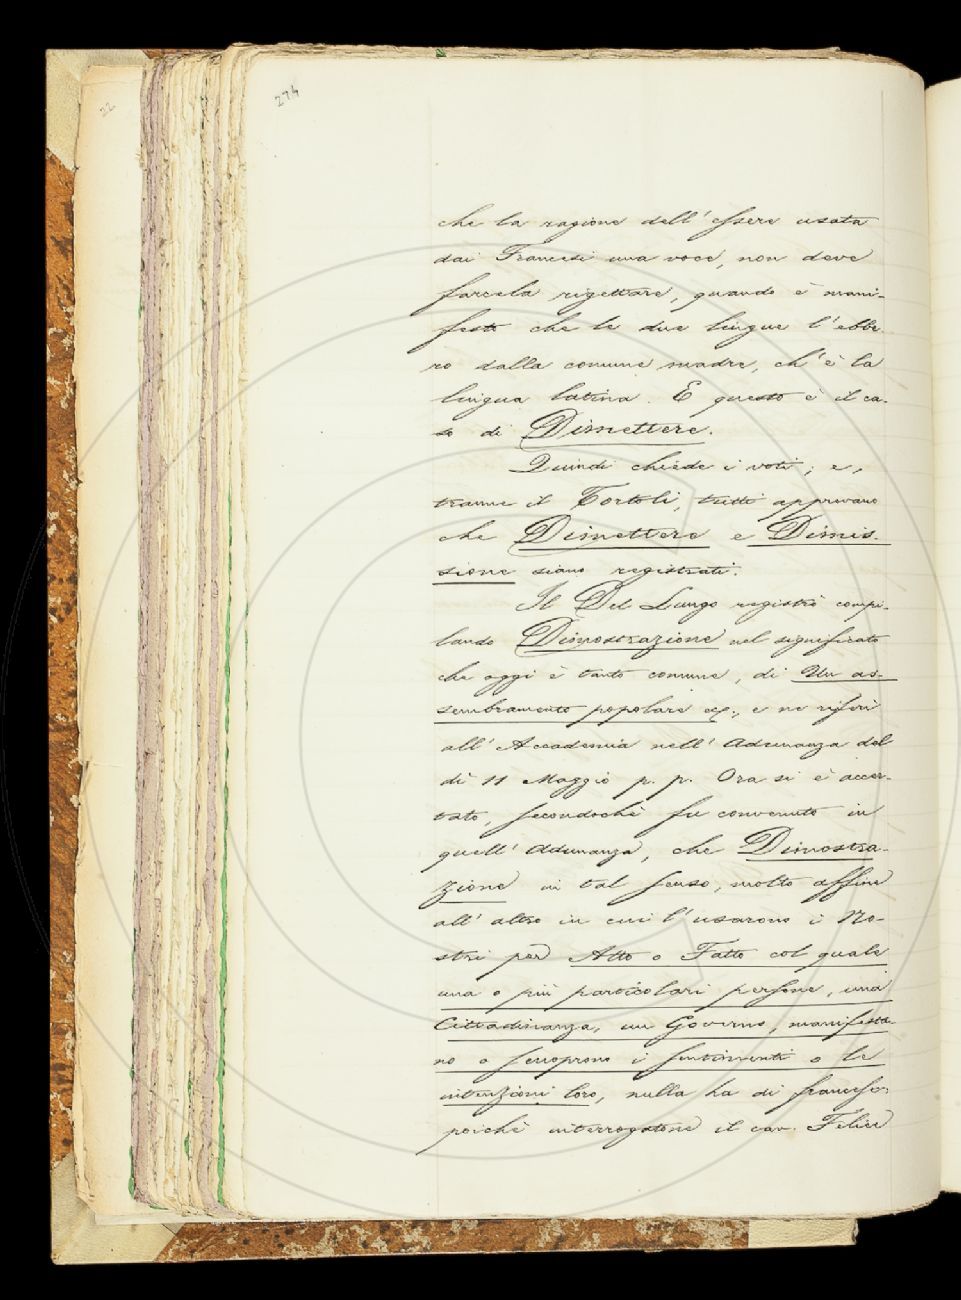 22
274
che la ragione dell' essere usata
dai Francesi una voce, non deve
farcela rigettare, quando è mani-
festo che le due lingue l' ebbe
ro dalla comune madre, ch' è la
lingua latina. E questo è il ca-
so di Dimettere.
Quindi chiede i voti; e,
tranne il Tortoli, tutti approvano
che Dimettere e Dimis-
sione siano registrati.
Il Del Lungo registrò compi-
lando Dimostrazione nel significato
che oggi è tanto comune, di Un as-
sembramento popolare ec., e ne riferì
all' Accademia nell' Adunanza del
dì 11 Maggio p. p. Ora si è accer-
tato, secondochè fu convenuto in
quell' Adunanza, che Dimostra-
zione in tal senso, molto affine
all' altro in cui l' usarono i No-
stri per Atto o Fatto col quale
una o più particolari persone, una
Cittadinanza, un Governo, manifesta-
no o scuoprono i sentimenti o le
intenzioni loro, nulla ha di francese:
poichè interrogatone il cav. Felice